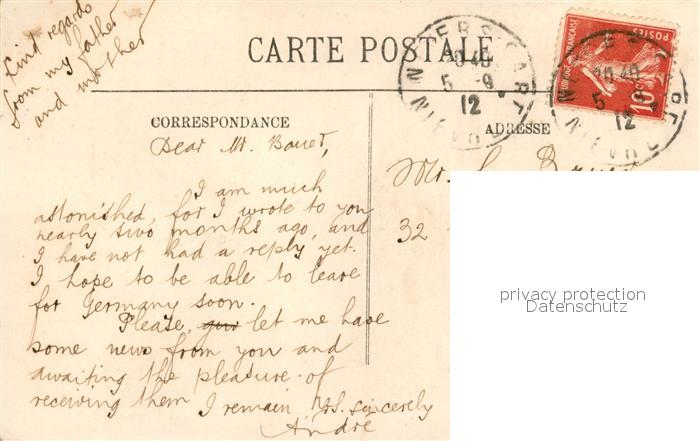 Kind regards
from my father
and mother
CARTE POSTALE
CORRESPONDANCE
ADRESSE
Dear Mr.
I am much
astonished, for I wrote to you
nearly two months ago, and
I have not had a reply yet.
I hope to be able to leave
for Germany soon.
Please, let me have
some news from you and
awaiting the pleasure of
receiving them I remain, Yrs. sincerely
André
Mr.
32
10 40
5 9
12
POSTES
10c
10 40
5
12
privacy protection
Datenschutz